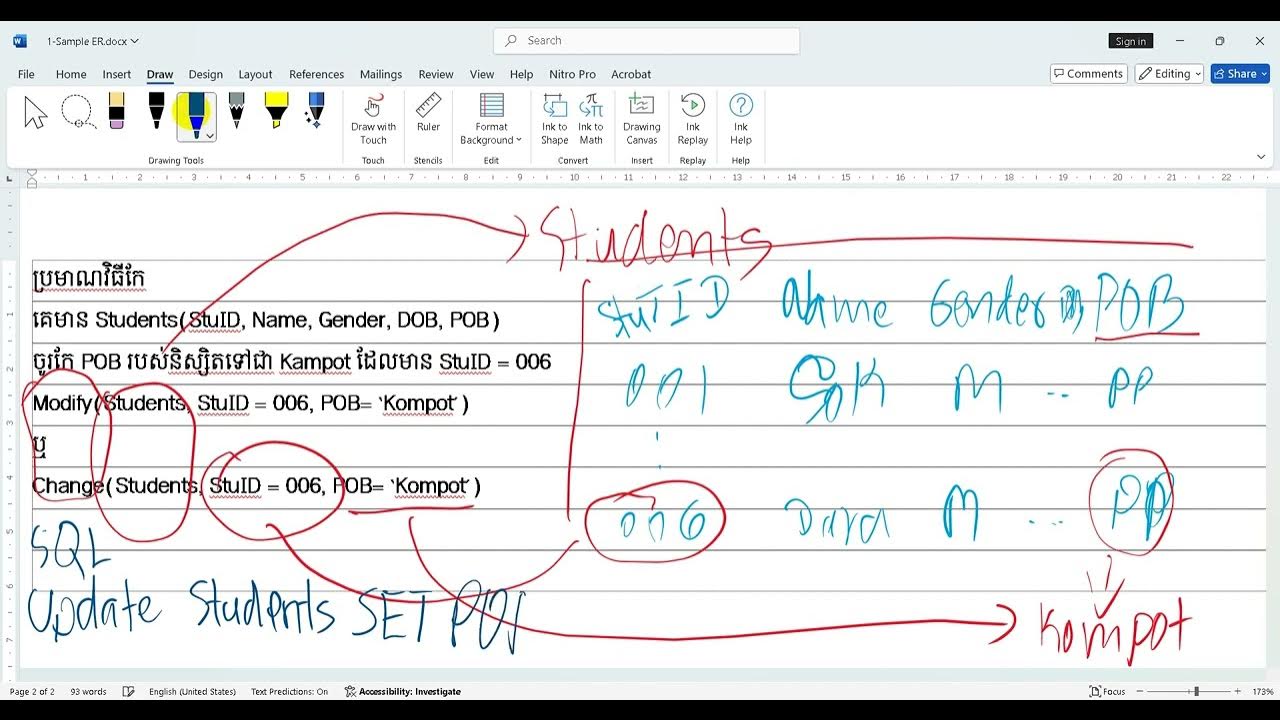 1-Sample ER.docx
Search
Sign in
File Home Insert Draw Design Layout References Mailings Review View Help Nitro Pro Acrobat
Comments Editing Share
Draw with Touch
Ruler
Format Background
Ink to Shape
Ink to Math
Drawing Canvas
Ink Replay
Ink Help
Drawing Tools Touch Stencils Edit Convert Insert Replay Help
1 2 3 4 5 6 7 8 9 10 11 12 13 14 15 16 17 18 19 20 21 22
Students
ប្រមាណវិធីកែ
StuTID Name Gender POB
គេមាន Students(StuID, Name, Gender, DOB, POB)
ចូរកែ POB របស់និស្សិតទៅជា Kampot ដែលមាន StuID = 006
001 SOK M ... PP
Modify(Students, StuID = 006, POB= ‘Kompot’)
ឬ
Change(Students, StuID = 006, POB= ‘Kompot’)
006 Dara M ... PP
SQL
Update Students SET PO
Kompot
Page 2 of 2 93 words English (United States) Text Predictions: On Accessibility: Investigate Focus 173%